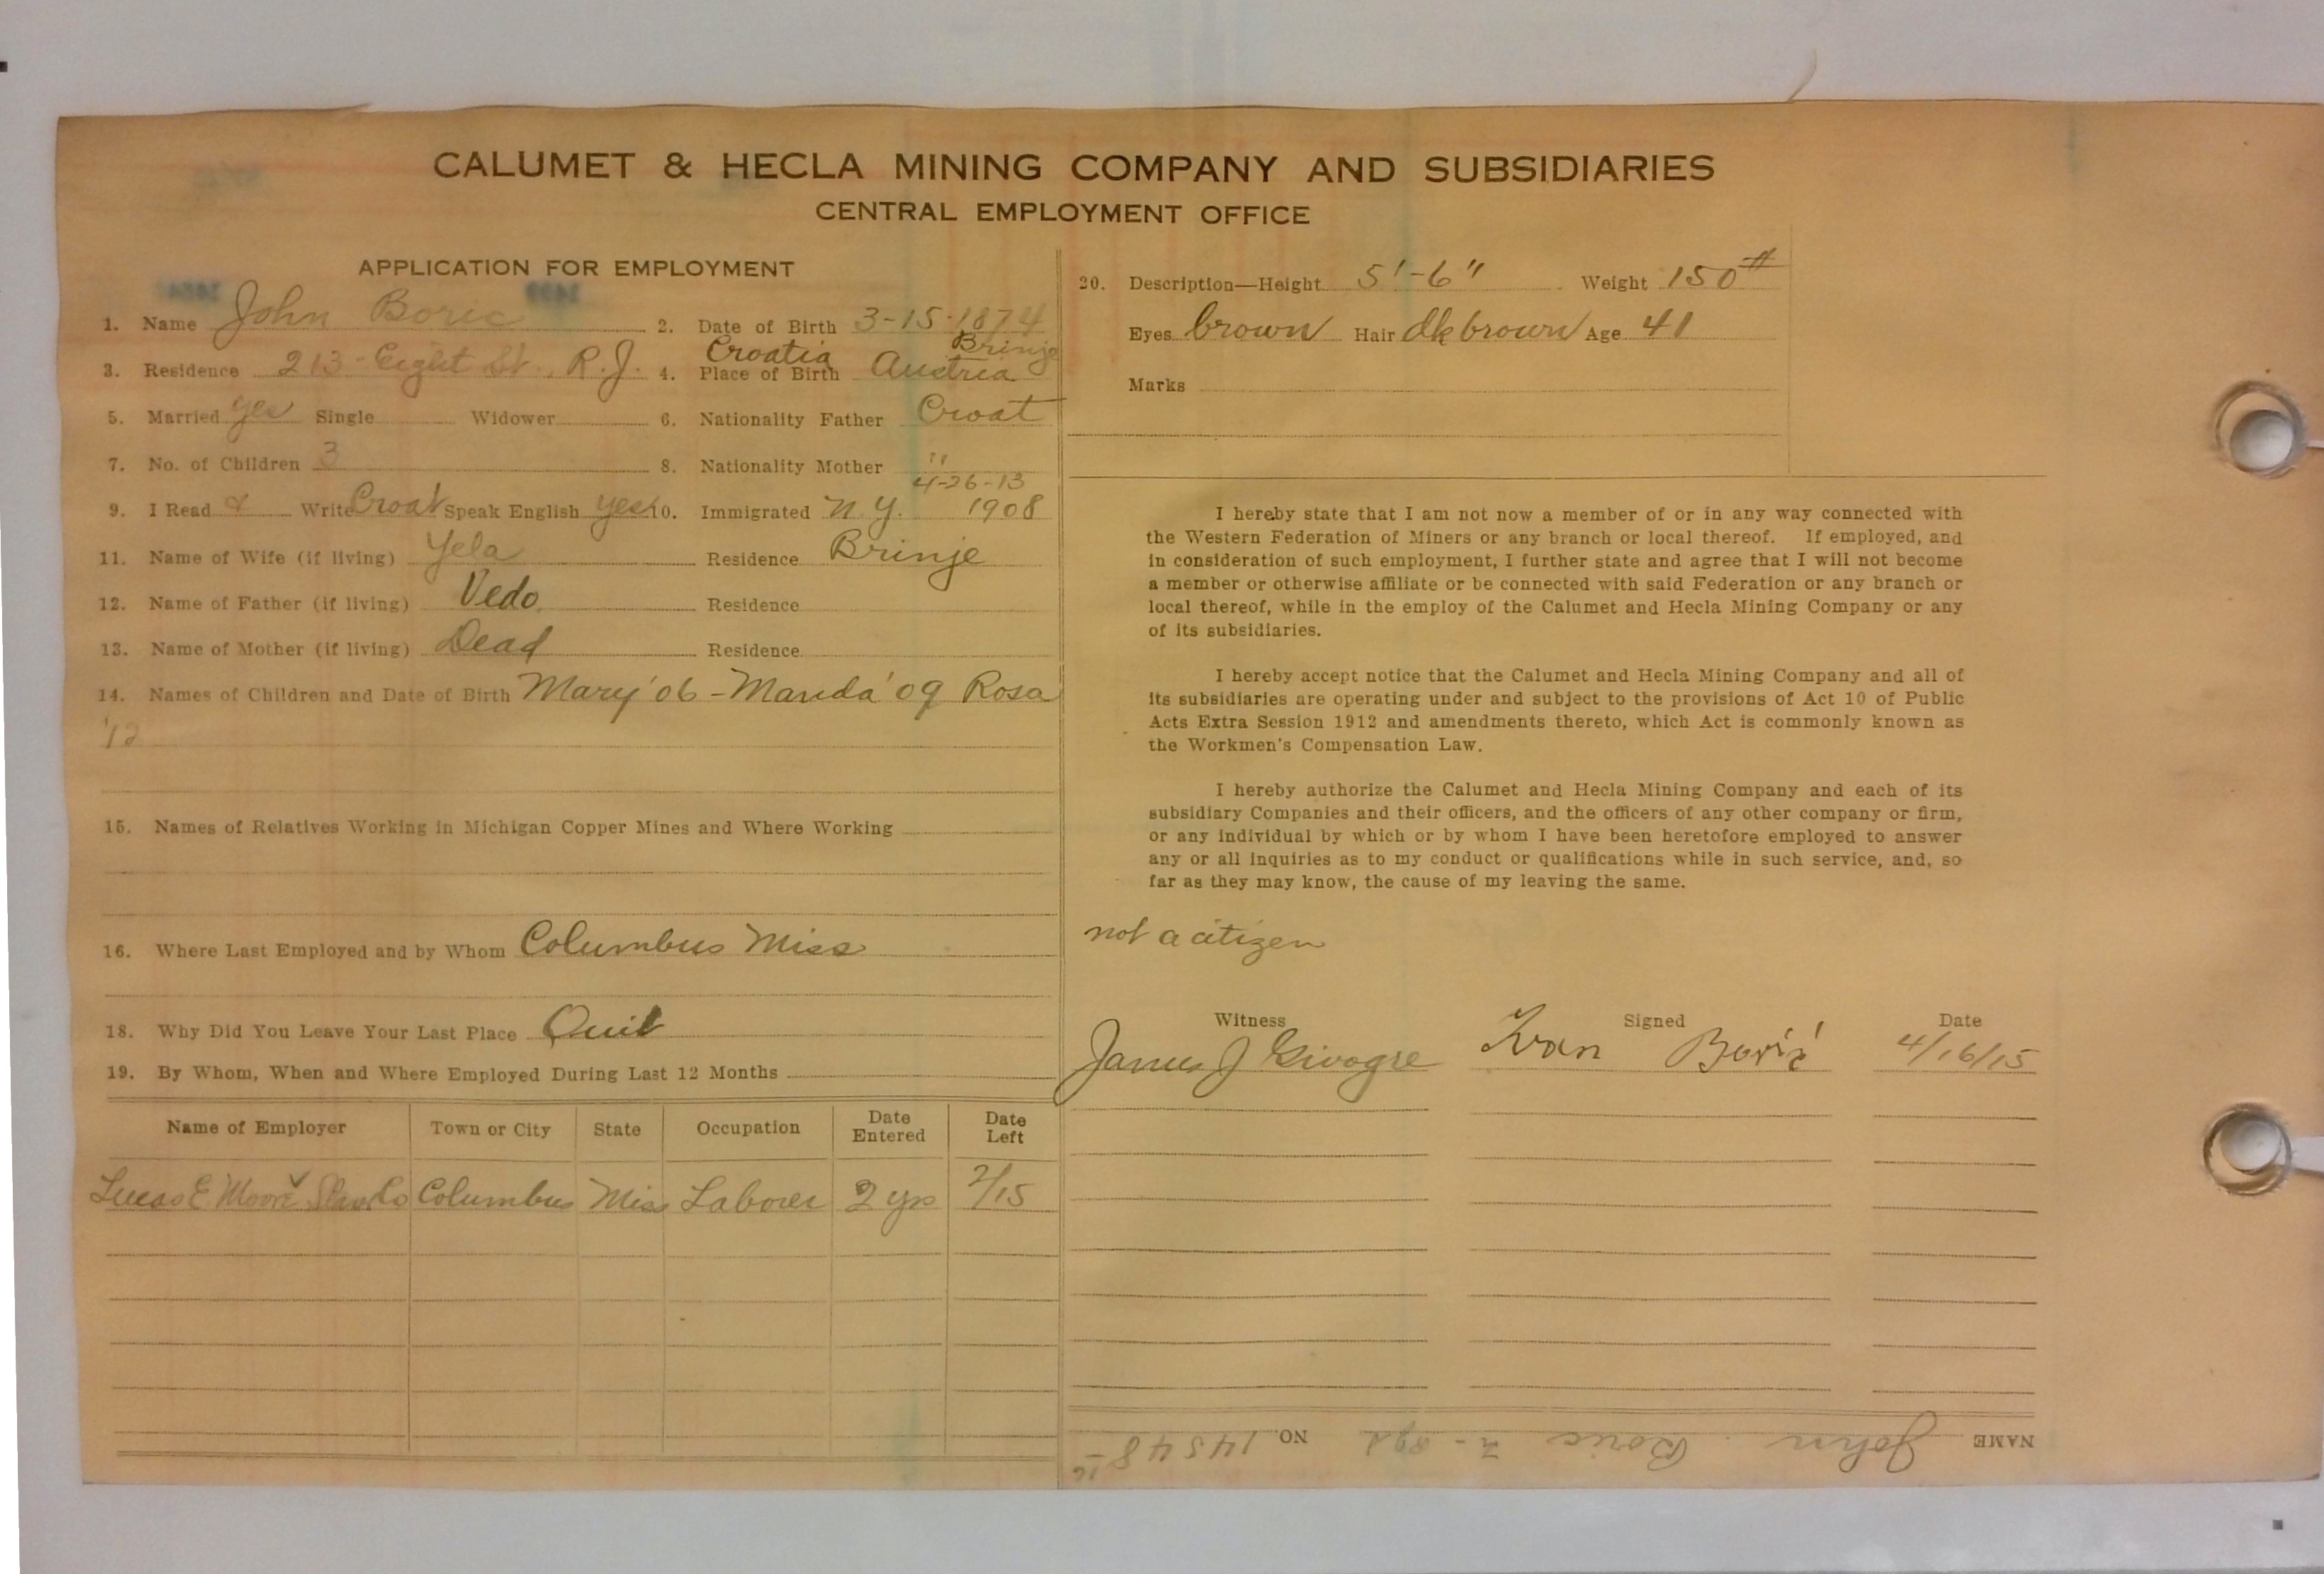 CALUMET & HECLA MINING COMPANY AND SUBSIDIARIES
CENTRAL EMPLOYMENT OFFICE
APPLICATION FOR EMPLOYMENT
1. Name John Boric 2. Date of Birth 3-15-1874
3. Residence 213 - Eight St., R.J. 4. Place of Birth Croatia Austria Brinje
5. Married yes Single Widower 6. Nationality Father Croat
7. No. of Children 3 8. Nationality Mother "
4-26-13
9. I Read & Write Croat Speak English yes 10. Immigrated N.Y. 1908
11. Name of Wife (if living) Yela Residence Brinje
12. Name of Father (if living) Vedo Residence
13. Name of Mother (if living) Dead Residence
14. Names of Children and Date of Birth Mary '06 - Manda '09 Rosa
'12
15. Names of Relatives Working in Michigan Copper Mines and Where Working
16. Where Last Employed and by Whom Columbus Miss
18. Why Did You Leave Your Last Place Quit
19. By Whom, When and Where Employed During Last 12 Months
Name of Employer Town or City State Occupation Date Entered Date Left
Lucas E Moore Co Columbus Miss Laborer 2 yrs 2/15
20. Description—Height 5'-6" Weight 150#
Eyes brown Hair dk brown Age 41
Marks
I hereby state that I am not now a member of or in any way connected with
the Western Federation of Miners or any branch or local thereof. If employed, and
in consideration of such employment, I further state and agree that I will not become
a member or otherwise affiliate or be connected with said Federation or any branch or
local thereof, while in the employ of the Calumet and Hecla Mining Company or any
of its subsidiaries.
I hereby accept notice that the Calumet and Hecla Mining Company and all of
its subsidiaries are operating under and subject to the provisions of Act 10 of Public
Acts Extra Session 1912 and amendments thereto, which Act is commonly known as
the Workmen's Compensation Law.
I hereby authorize the Calumet and Hecla Mining Company and each of its
subsidiary Companies and their officers, and the officers of any other company or firm,
or any individual by which or by whom I have been heretofore employed to answer
any or all inquiries as to my conduct or qualifications while in such service, and, so
far as they may know, the cause of my leaving the same.
not a citizen
Witness Signed Date
James J Ivan Borić 4/16/15
NAME John Boric NO. 14548